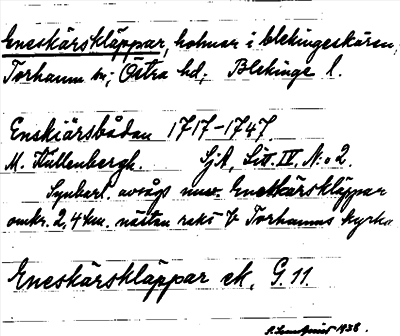 Eneskärskläppar, holmar i Blekingeskären,
Torhamn sn, Östra hd, Blekinge l.
Enskiärsbådan 1717-1747.
M. Hullenbergh. SjA, Litt. IV, N:o 2.
Synbart. avsågs nuv. Eneskärskläppar
omkr. 2,4 km. nästan rakt V Torhamns kyrka
Eneskärskläppar ek. G. 11.
1938.